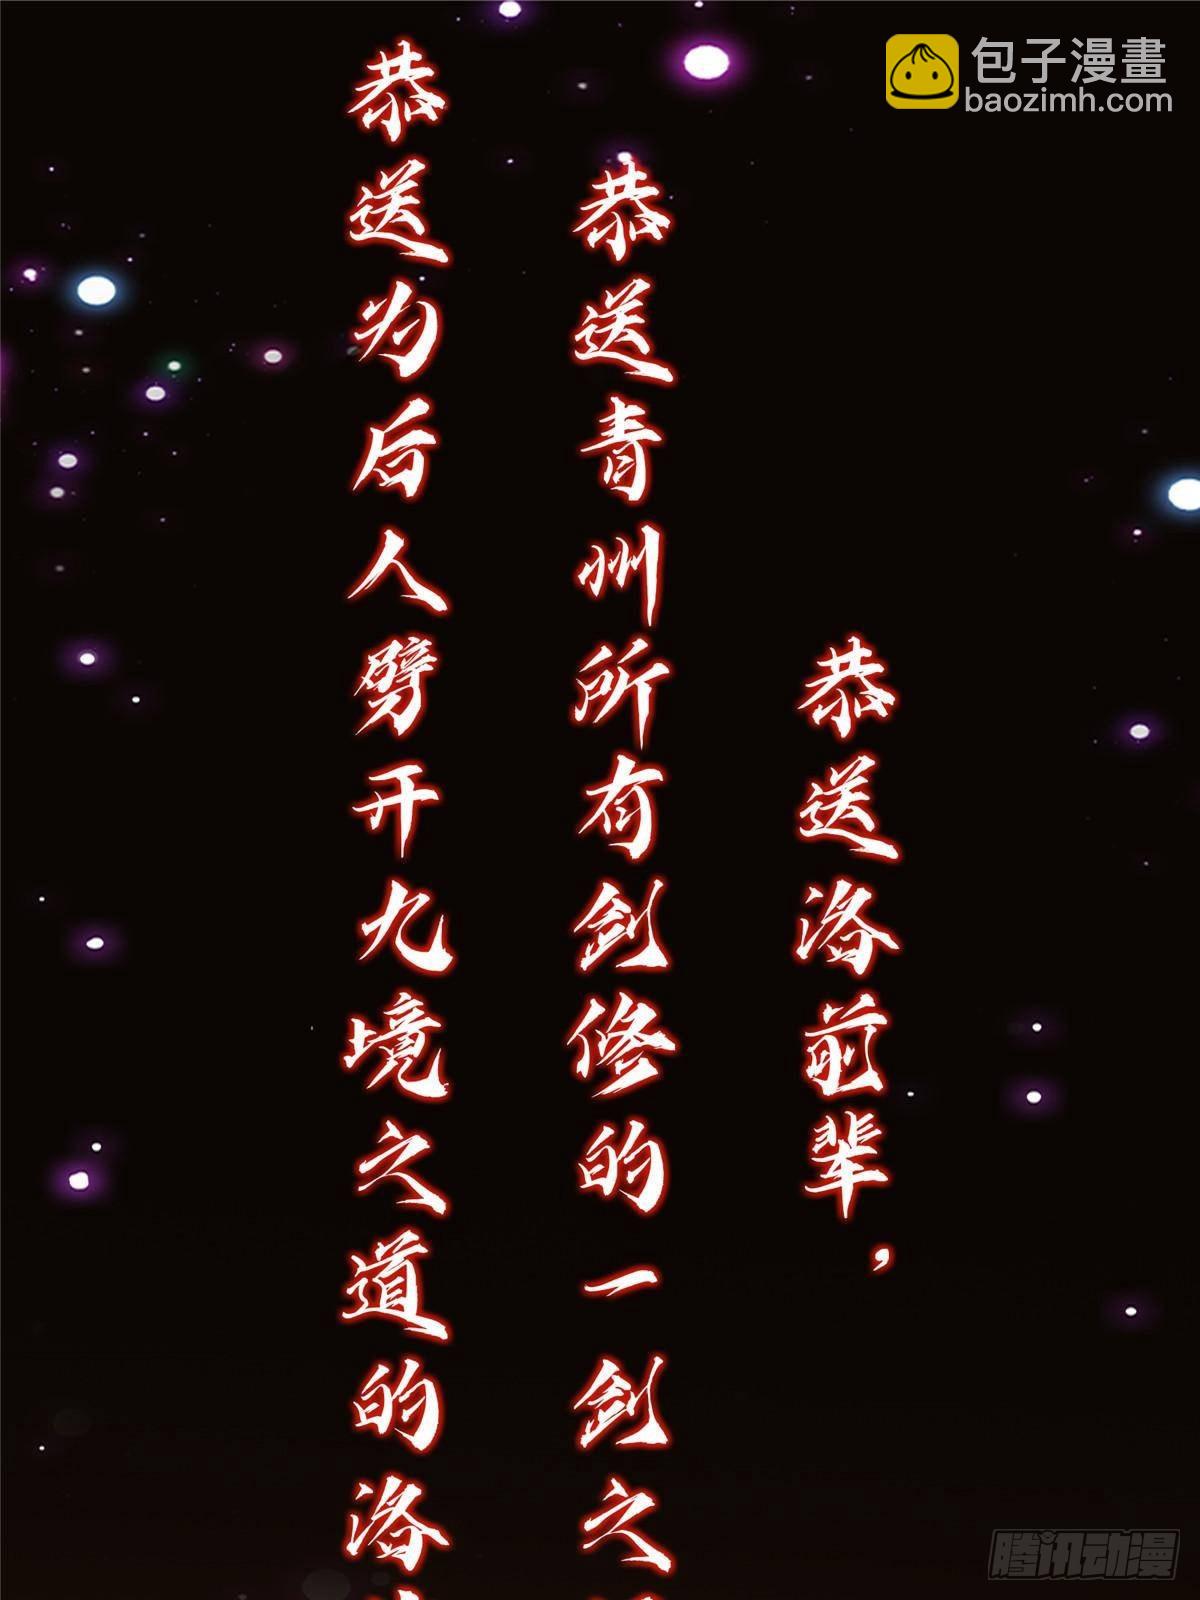 包子漫畫
baozimh.com
恭送洛前辈，
恭送青州所有剑修的一剑之
恭送为后人劈开九境之道的洛
腾讯动漫